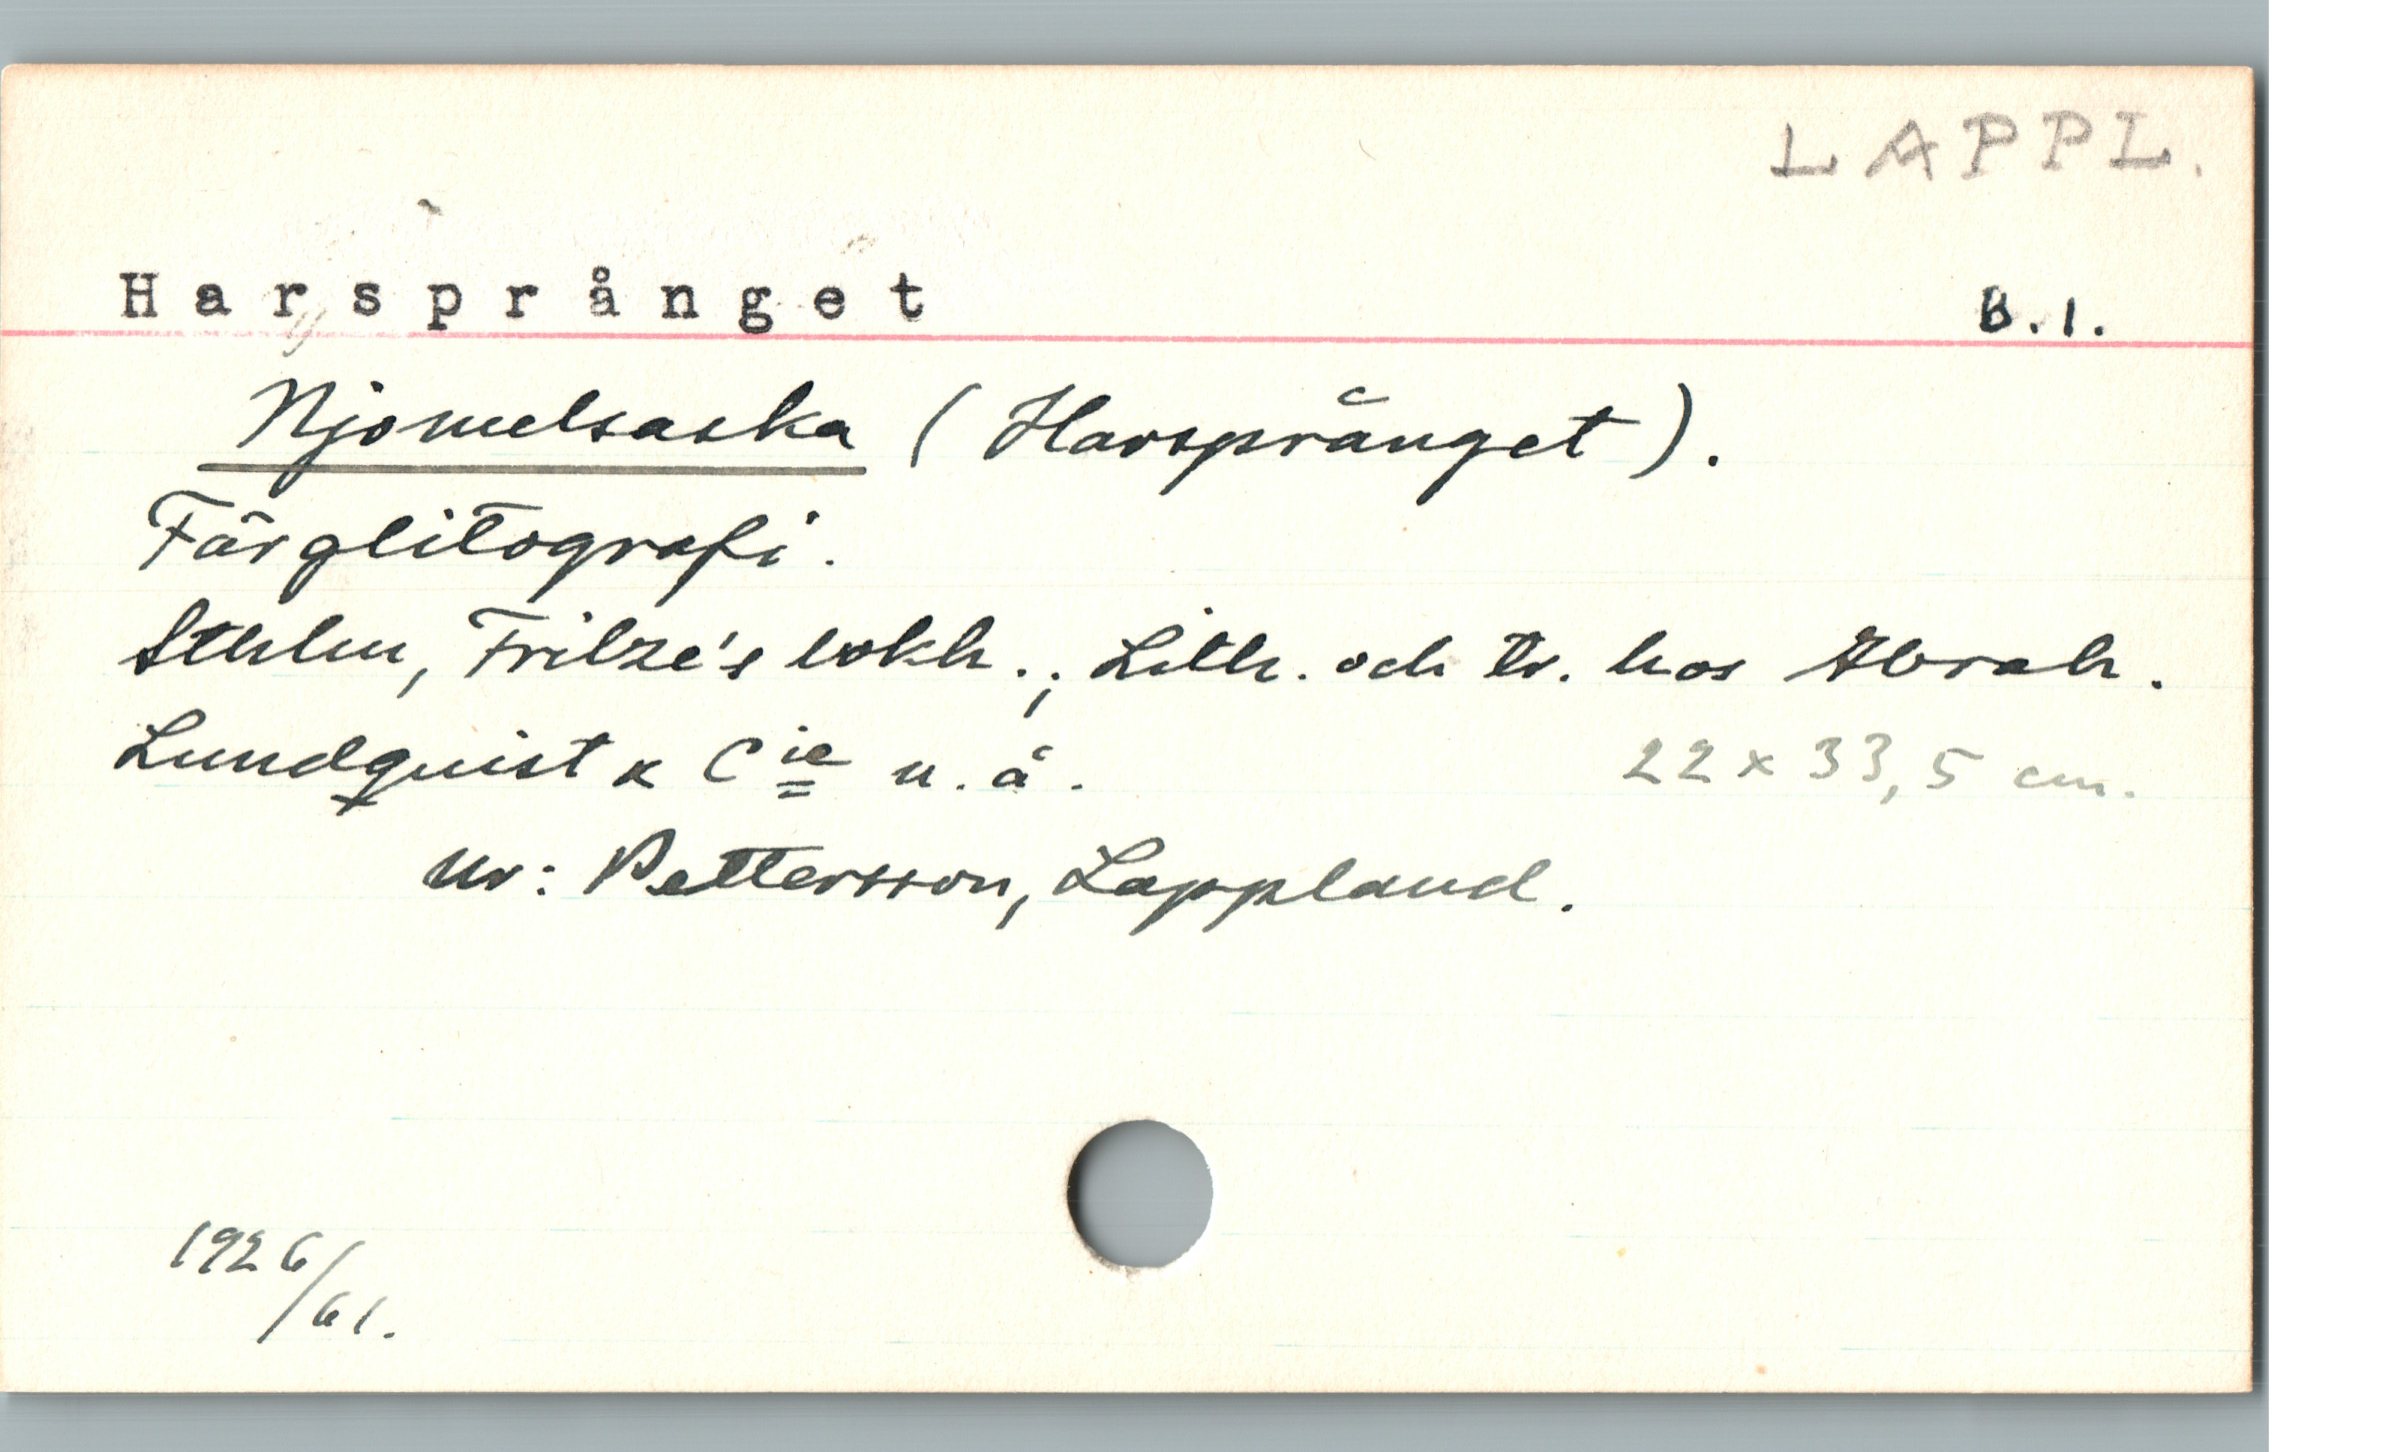 LAPPL.
Harsprånget
B.1.
Njomelsaska (Harsprånget).
Färglitografi.
Sthlm, Fritze's bokh.; Lith. och tr. hos Abrah.
Lundquist & Cie u. å.
22 x 33,5 cm.
Ur: Pettersson, Lappland.
1926/61.